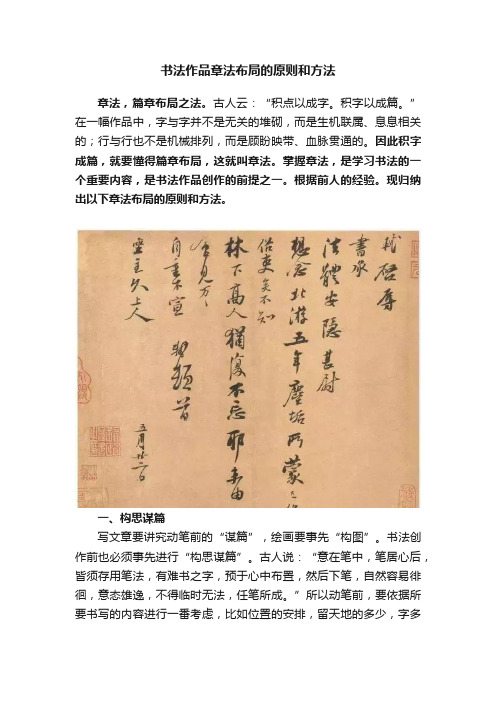 书法作品章法布局的原则和方法
章法，篇章布局之法。古人云：“积点以成字。积字以成篇。”
在一幅作品中，字与字并不是无关的堆砌，而是生机联属、息息相关
的；行与行也不是机械排列，而是顾盼映带、血脉贯通的。因此积字
成篇，就要懂得篇章布局，这就叫章法。掌握章法，是学习书法的一
个重要内容，是书法作品创作的前提之一。根据前人的经验。现归纳
出以下章法布局的原则和方法。
軾啓辱
書承
法體安隱甚尉
想念北游五年塵垢所蒙已
俗吏矣不知
林下髙人猶復不忘耶未由
會見万万
自重不宣 軾頓首
坐主久上人
五月廿二日
一、构思谋篇
写文章要讲究动笔前的“谋篇”，绘画要事先“构图”。书法创
作前也必须事先进行“构思谋篇”。古人说：“意在笔中，笔居心后，
皆须存用笔法，有难书之字，预于心中布置，然后下笔，自然容易徘
徊，意态雄逸，不得临时无法，任笔所成。”所以动笔前，要依据所
要书写的内容进行一番考虑，比如位置的安排，留天地的多少，字多